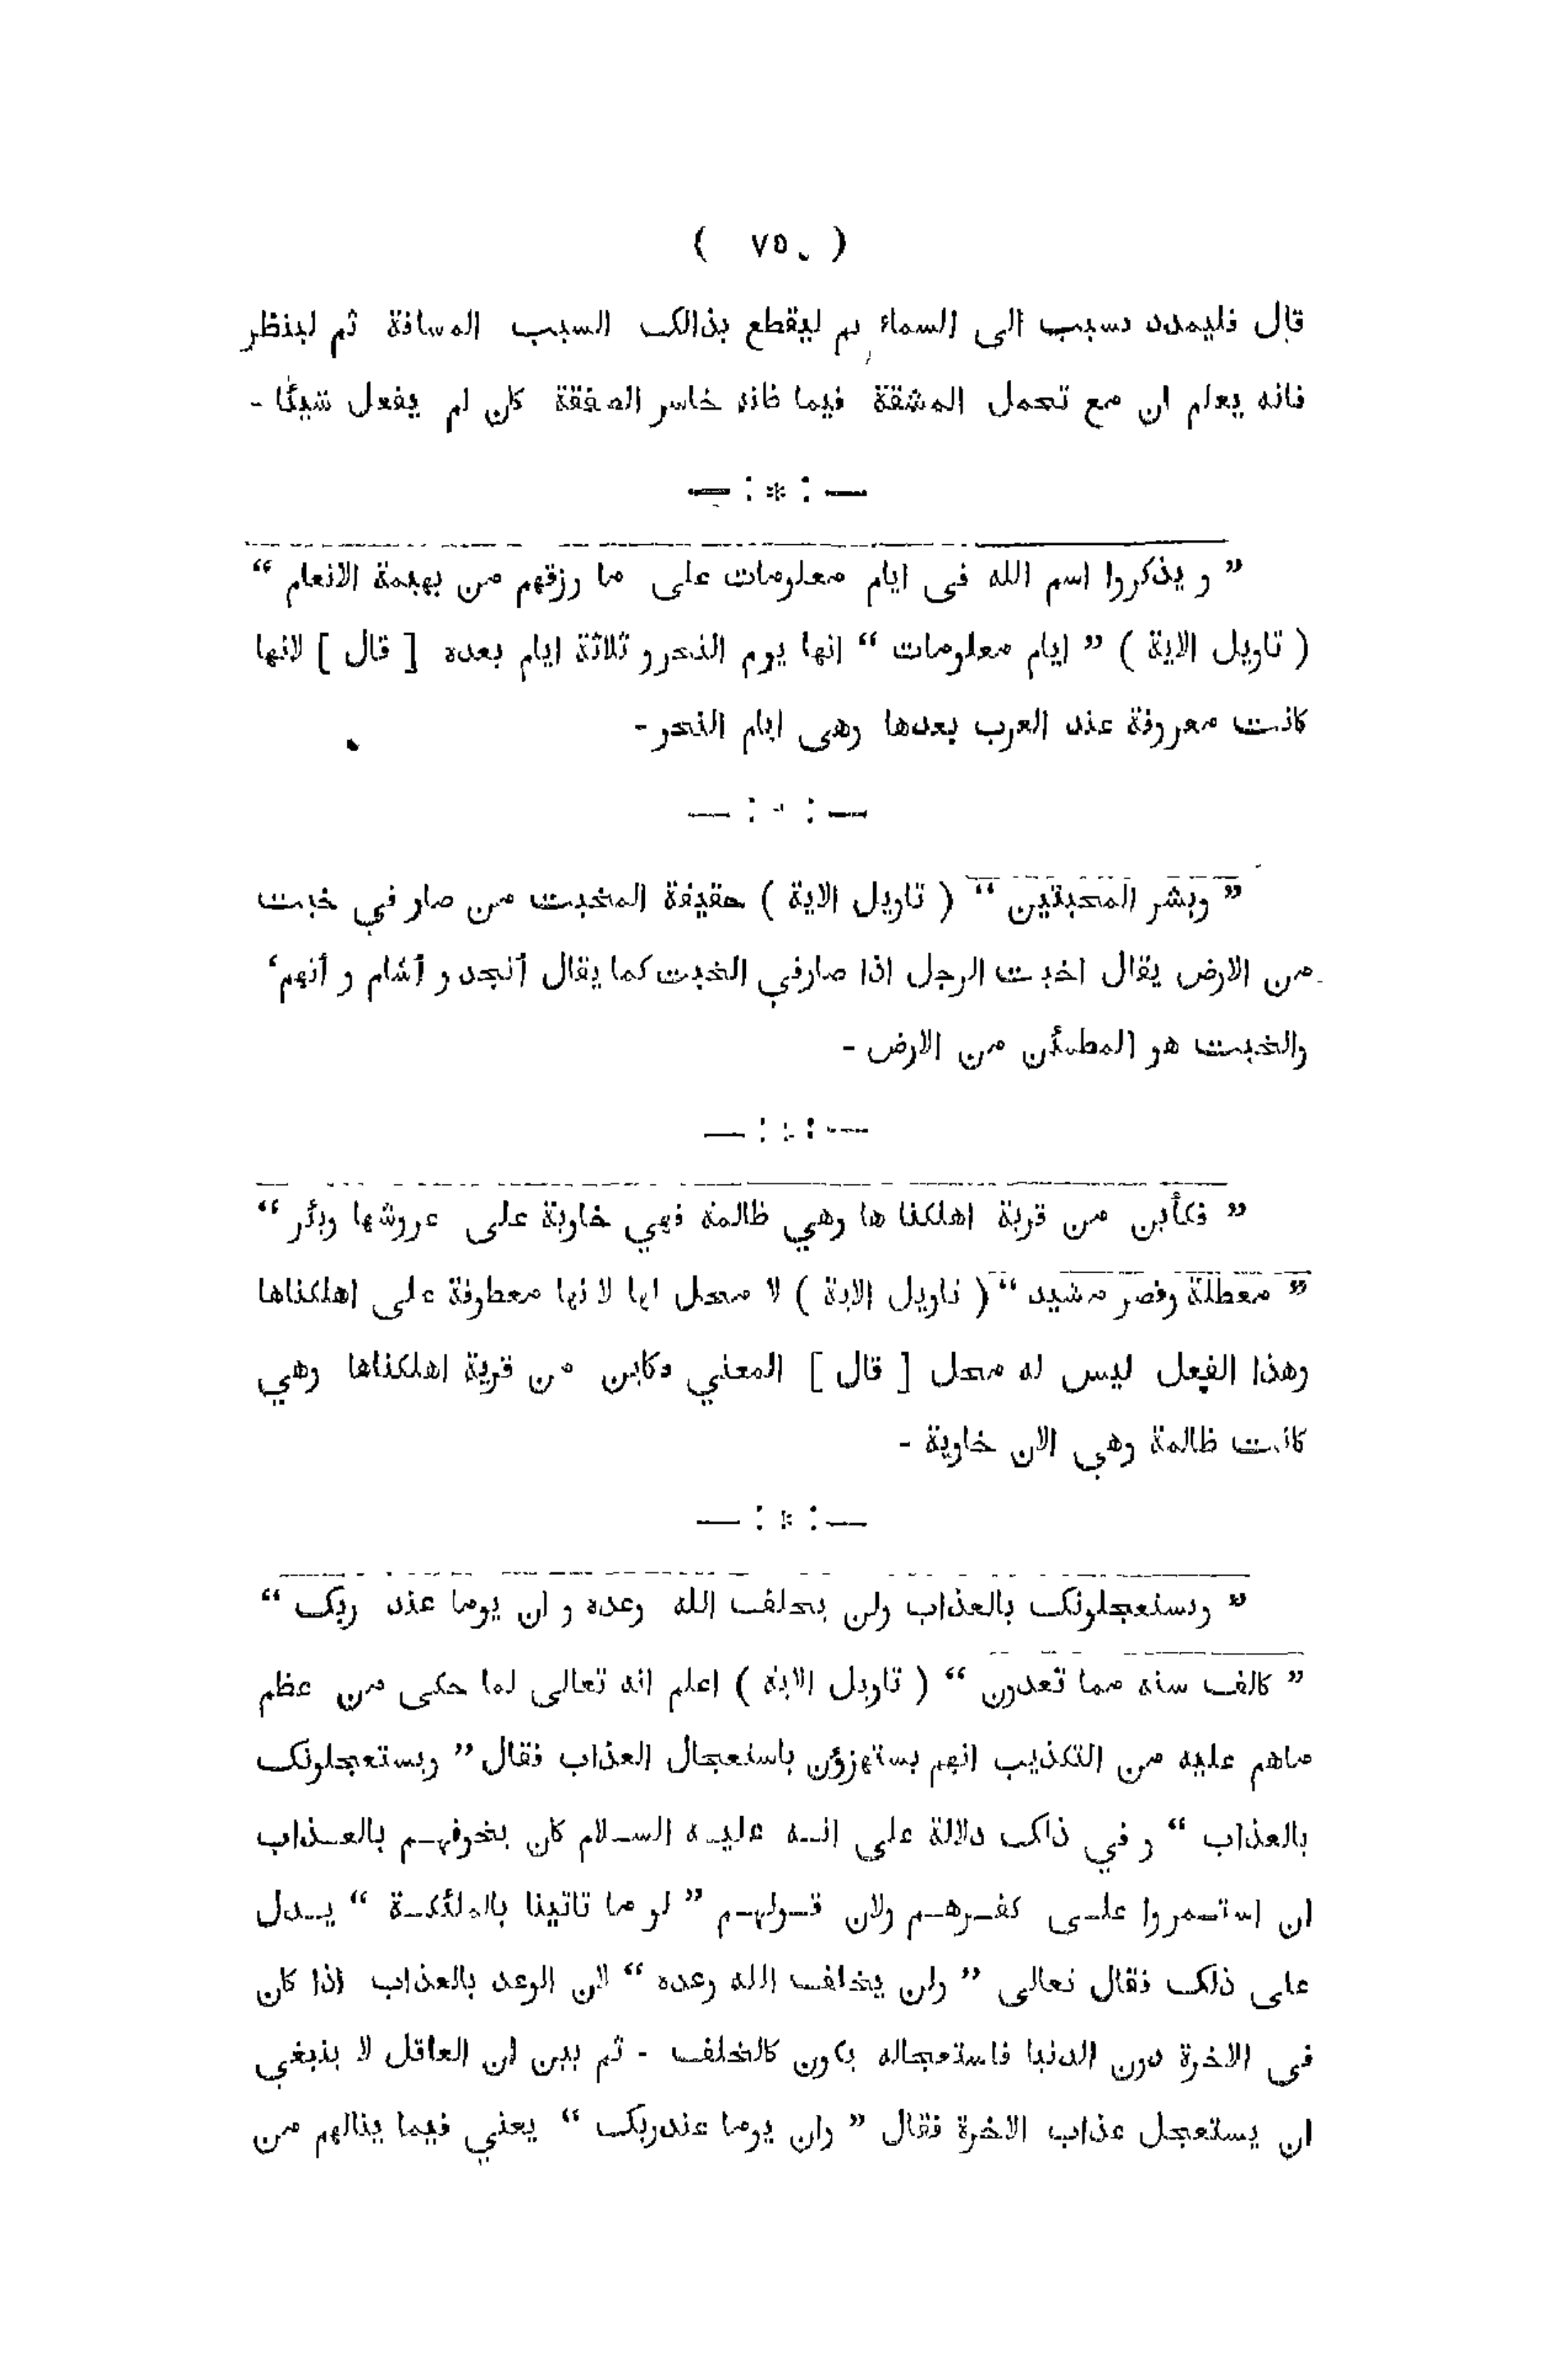 ( ٧٥٠ )
قال فليمدد بسبب الى السماء ثم ليقطع بذالك السبب المسافة ثم لينظر
فانه يعلم ان مع تحمل المشقة فيما ظنه خاسر الصفقة كان لم يفعل شيئًا -
— : * : —
” و يذكروا اسم الله فى ايام معلومات على ما رزقهم من بهيمة الانعام “
( تاويل الاية ) ” ايام معلومات “ انها يوم النحر و ثلاثة ايام بعده [ قال ] لانها
كانت معروفة عند العرب بعدها وهى ايام النحر -
— : * : —
” وبشر المخبتين “ ( تاويل الاية ) حقيقة المخبت من صار في خبت
من الارض يقال اخبت الرجل اذا صارفي الخبت كما يقال أنجد و أشام و أتهم‘
والخبت هو المطمئن من الارض -
— : * : —
” فكأين من قرية اهلكنا ها وهي ظالمة فهي خاوية على عروشها وبئر “
” معطلة وقصر مشيد “ ( تاويل الاية ) لا محل لها لا نها معطوفة على اهلكناها
وهذا الفعل ليس له محل [ قال ] المعني وكاين من قرية اهلكناها وهي
كانت ظالمة وهي الان خاوية -
— : * : —
” ويستعجلونك بالعذاب ولن يخلف الله وعده و ان يوما عند ربك “
” كالف سنه مما تعدون “ ( تاويل الاية ) اعلم انه تعالى لما حكى من عظم
ماهم عليه من التكذيب انهم يستهزؤن باستعجال العذاب فقال ” ويستعجلونك
بالعذاب “ و في ذلك دلالة على انه عليه السلام كان يخوفهم بالعذاب
ان استمروا على كفرهم ولان قولهم ” لو ما تاتينا بالملئكة “ يدل
على ذلك فقال تعالى ” ولن يخلف الله وعده “ لان الوعد بالعذاب اذا كان
فى الاخرة دون الدنيا فاستعجاله يكون كالخلف - ثم بين ان العاقل لا ينبغي
ان يستعجل عذاب الاخرة فقال ” وان يوما عندربك “ يعني فيما ينالهم من